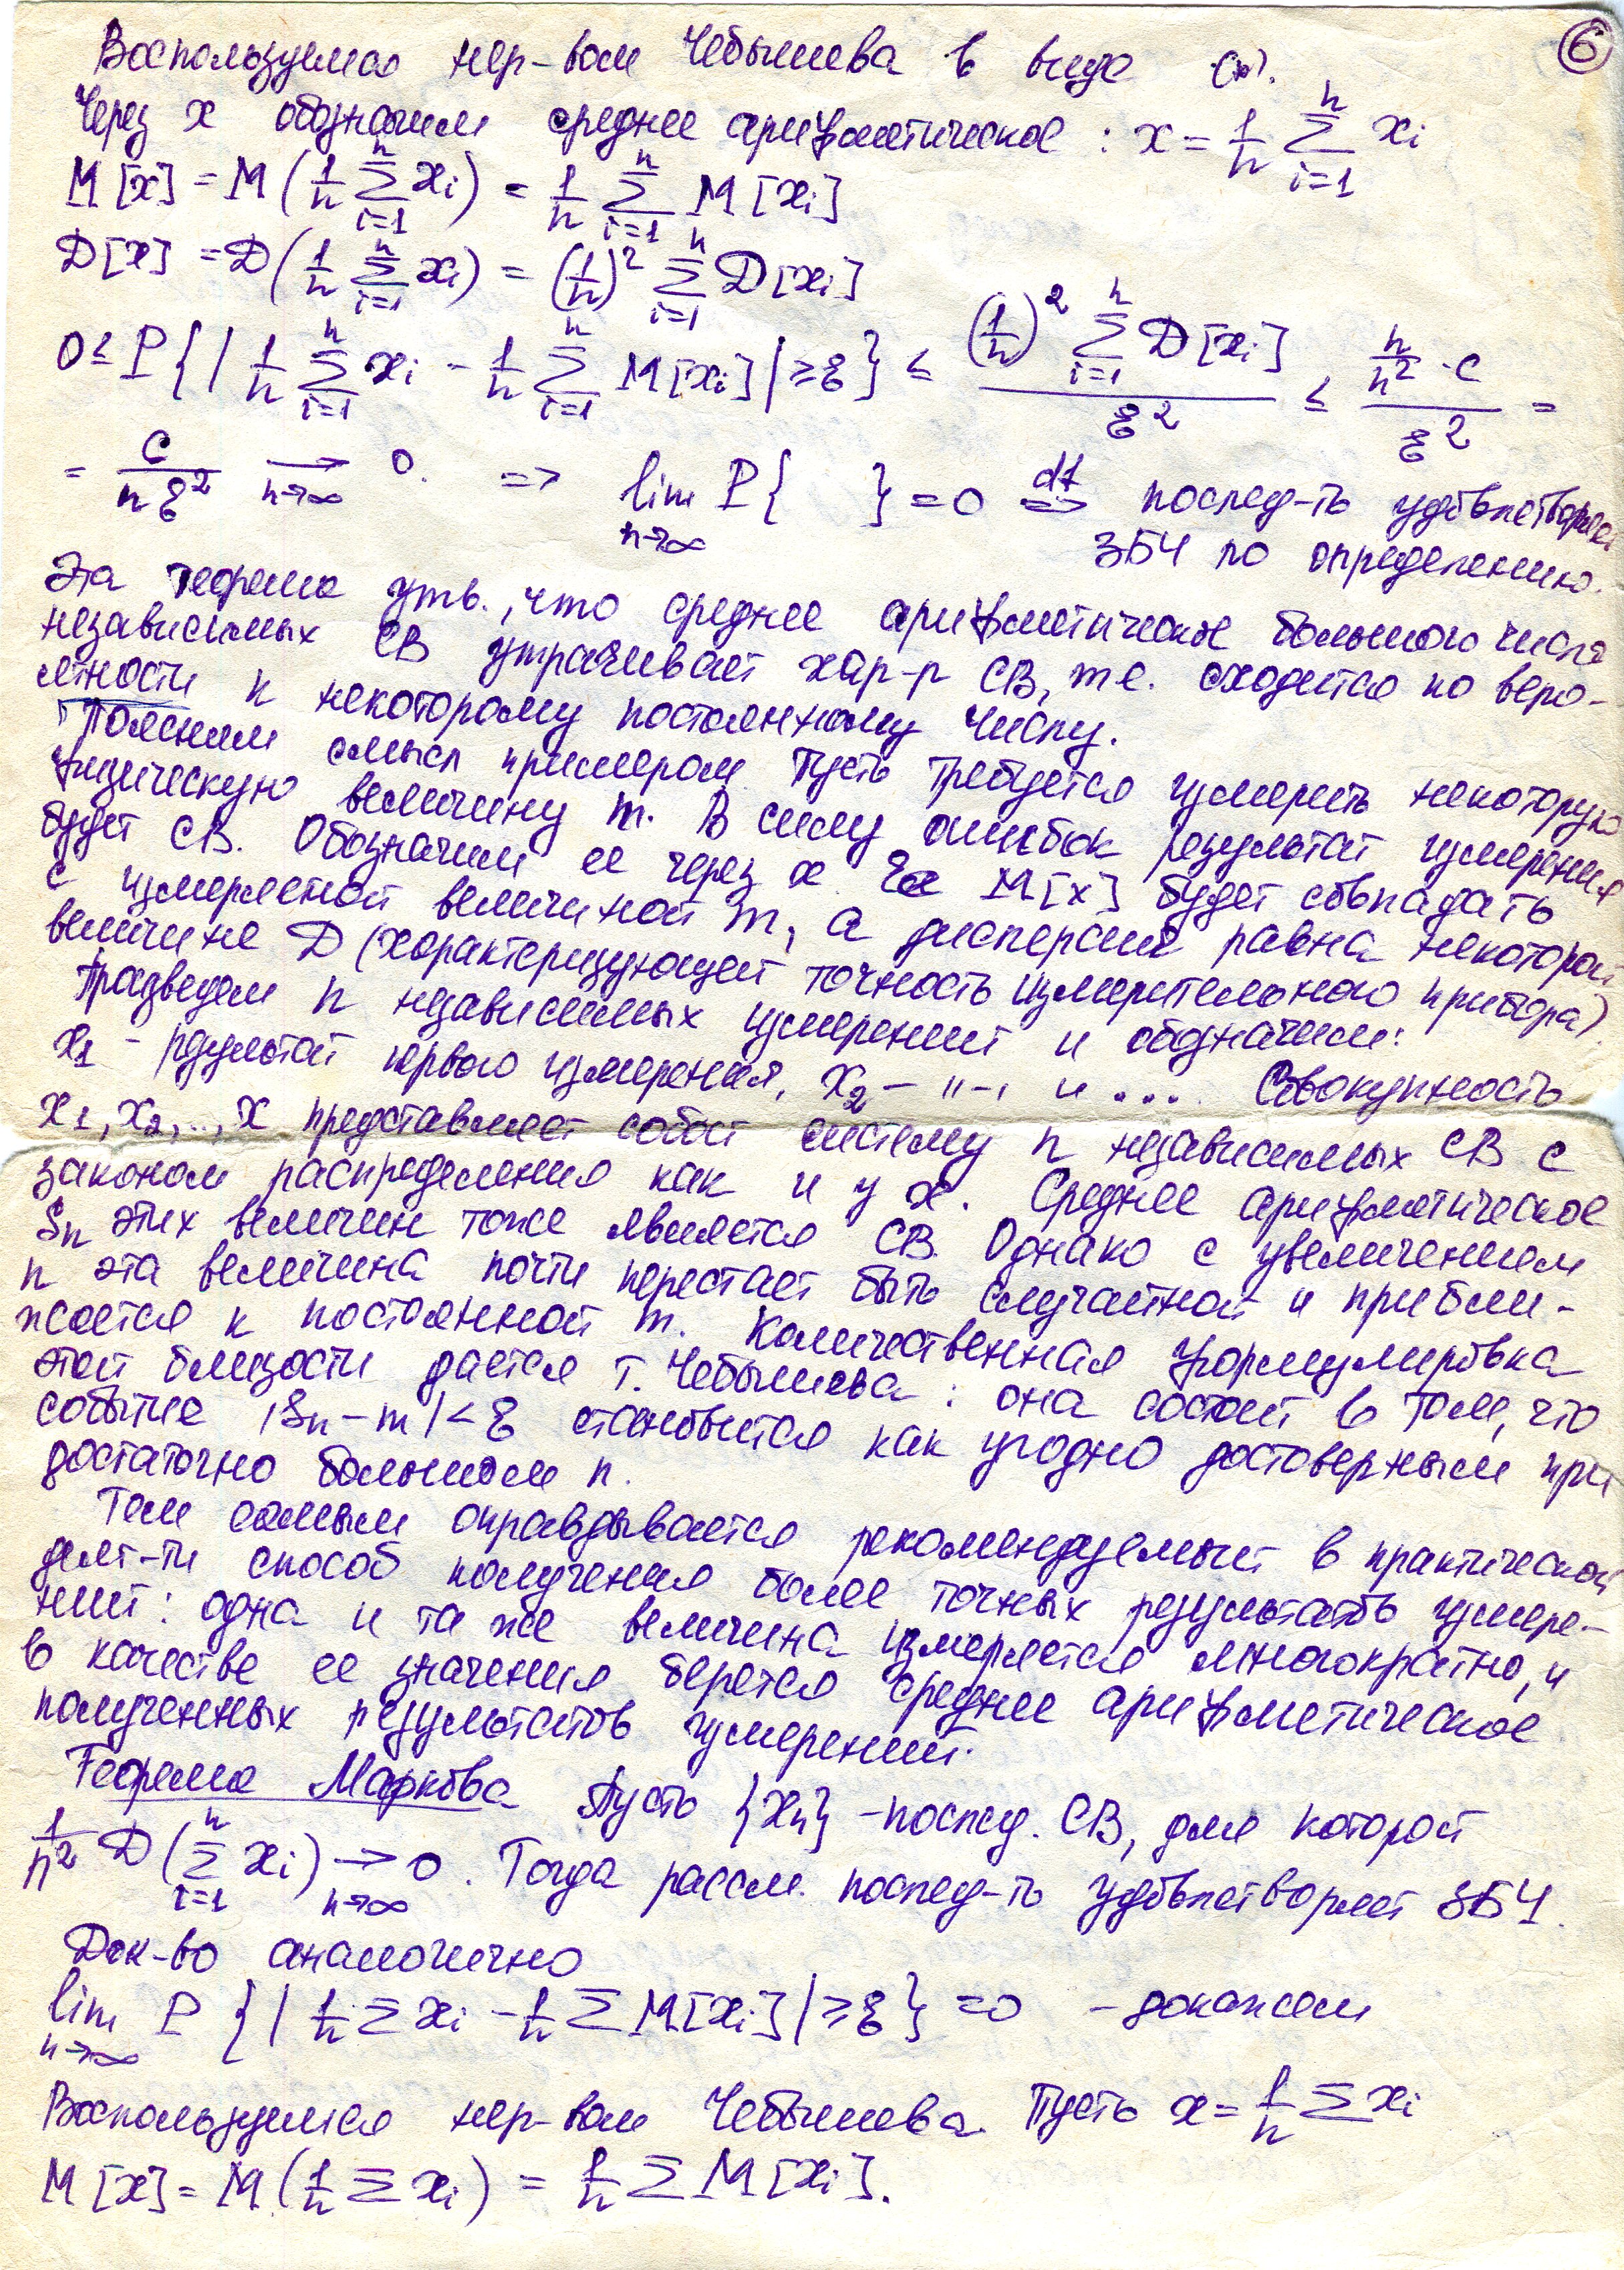 6
Воспользуемся нер-вом Чебышева в виде (*).
Через x обозначим среднее арифметическое : x = 1/n ∑_{i=1}^{n} x_i
M[x] = M(1/n ∑_{i=1}^{n} x_i) = 1/n ∑_{i=1}^{n} M[x_i]
D[x] = D(1/n ∑_{i=1}^{n} x_i) = (1/n)^2 ∑_{i=1}^{n} D[x_i]
0 ≤ P{| 1/n ∑_{i=1}^{n} x_i - 1/n ∑_{i=1}^{n} M[x_i] | ≥ ξ} ≤ ((1/n)^2 ∑_{i=1}^{n} D[x_i]) / ξ^2 ≤ (n/n^2 · c) / ξ^2 =
= c / (n ξ^2) →_{n→∞} 0. => lim_{n→∞} P{ } = 0 <=>^{df} послед-ть удовлетворяет
ЗБЧ по определению.
Эта теорема утв., что среднее арифметическое большого числа
независимых СВ утрачивает хар-р СВ, т.е. сходится по веро-
ятности к некоторому постоянному числу.
Поясним смысл примером Пусть требуется измерить некоторую
физическую величину m. В силу ошибок результат измерения
будет СВ. Обозначим ее через x. Ее M[x] будет совпадать
с измеряемой величиной m, а дисперсия равна некоторой
величине D (характеризующей точность измерительного прибора).
Произведем n независимых измерений и обозначим:
x_1 - результат первого измерения, x_2 - "-, и .... Совокупность
x_1, x_2, .., x представляет собой систему n независимых СВ с
законом распределения как и у x. Среднее арифметическое
S_n этих величин тоже является СВ. Однако с увеличением
n эта величина почти перестает быть случайной и прибли-
жается к постоянной m. Количественная формулировка
этой близости дается т. Чебышева : она состоит в том, что
событие |S_n - m| < ξ становится как угодно достоверным при
достаточно большом n.
Тем самым оправдывается рекомендуемый в практической
деят-ти способ получения более точных результатов измере-
ний : одна и та же величина измеряется многократно, и
в качестве ее значения берется среднее арифметическое
полученных результатов измерений.
Теорема Маркова Пусть {x_n} - послед. СВ, для которой
1/n^2 D(∑_{i=1}^{n} x_i) →_{n→∞} 0. Тогда рассм. послед-ть удовлетворяет ЗБЧ.
Док-во аналогично
lim_{n→∞} P{| 1/n ∑ x_i - 1/n ∑ M[x_i] | ≥ ξ} = 0 - докажем
Воспользуемся нер-вом Чебышева. Пусть x = 1/n ∑ x_i
M[x] = M(1/n ∑ x_i) = 1/n ∑ M[x_i].